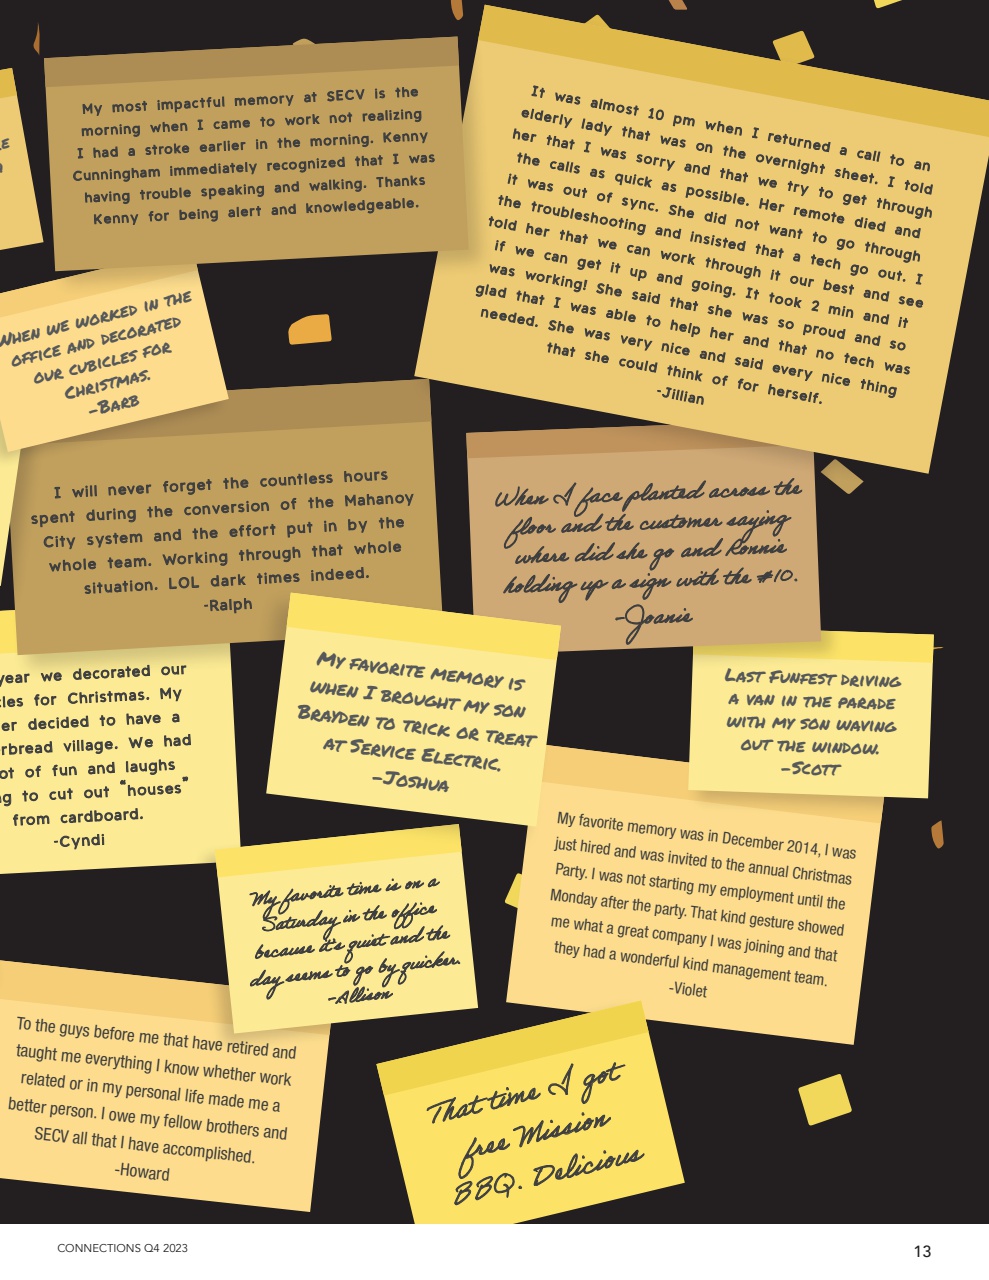 My most impactful memory at SECV is the
morning when I came to work not realizing
I had a stroke earlier in the morning. Kenny
Cunningham immediately recognized that I was
having trouble speaking and walking. Thanks
Kenny for being alert and knowledgeable.
It was almost 10 pm when I returned a call to an
elderly lady that was on the overnight sheet. I told
her that I was sorry and that we try to get through
the calls as quick as possible. Her remote died and
it was out of sync. She did not want to go through
the troubleshooting and insisted that a tech go out. I
told her that we can work through it our best and see
if we can get it up and going. It took 2 min and it
was working! She said that she was so proud and so
glad that I was able to help her and that no tech was
needed. She was very nice and said every nice thing
that she could think of for herself.
-Jillian
When we worked in the
office and decorated
our cubicles for
Christmas.
-Barb
I will never forget the countless hours
spent during the conversion of the Mahanoy
City system and the effort put in by the
whole team. Working through that whole
situation. LOL dark times indeed.
-Ralph
When I face planted across the
floor and the customer saying
where did she go and Ronnie
holding up a sign with the #10.
-Joanie
year we decorated our
for Christmas. My
decided to have a
village. We had
of fun and laughs
to cut out “houses”
from cardboard.
-Cyndi
My favorite memory is
when I brought my son
Brayden to trick or treat
at Service Electric.
-Joshua
Last Funfest driving
a van in the parade
with my son waving
out the window.
-Scott
My favorite memory was in December 2014, I was
just hired and was invited to the annual Christmas
Party. I was not starting my employment until the
Monday after the party. That kind gesture showed
me what a great company I was joining and that
they had a wonderful kind management team.
-Violet
My favorite time is on a
Saturday in the office
because it's quiet and the
day seems to go by quicker.
-Allison
To the guys before me that have retired and
taught me everything I know whether work
related or in my personal life made me a
better person. I owe my fellow brothers and
SECV all that I have accomplished.
-Howard
That time I got
free Mission
BBQ. Delicious
CONNECTIONS Q4 2023
13